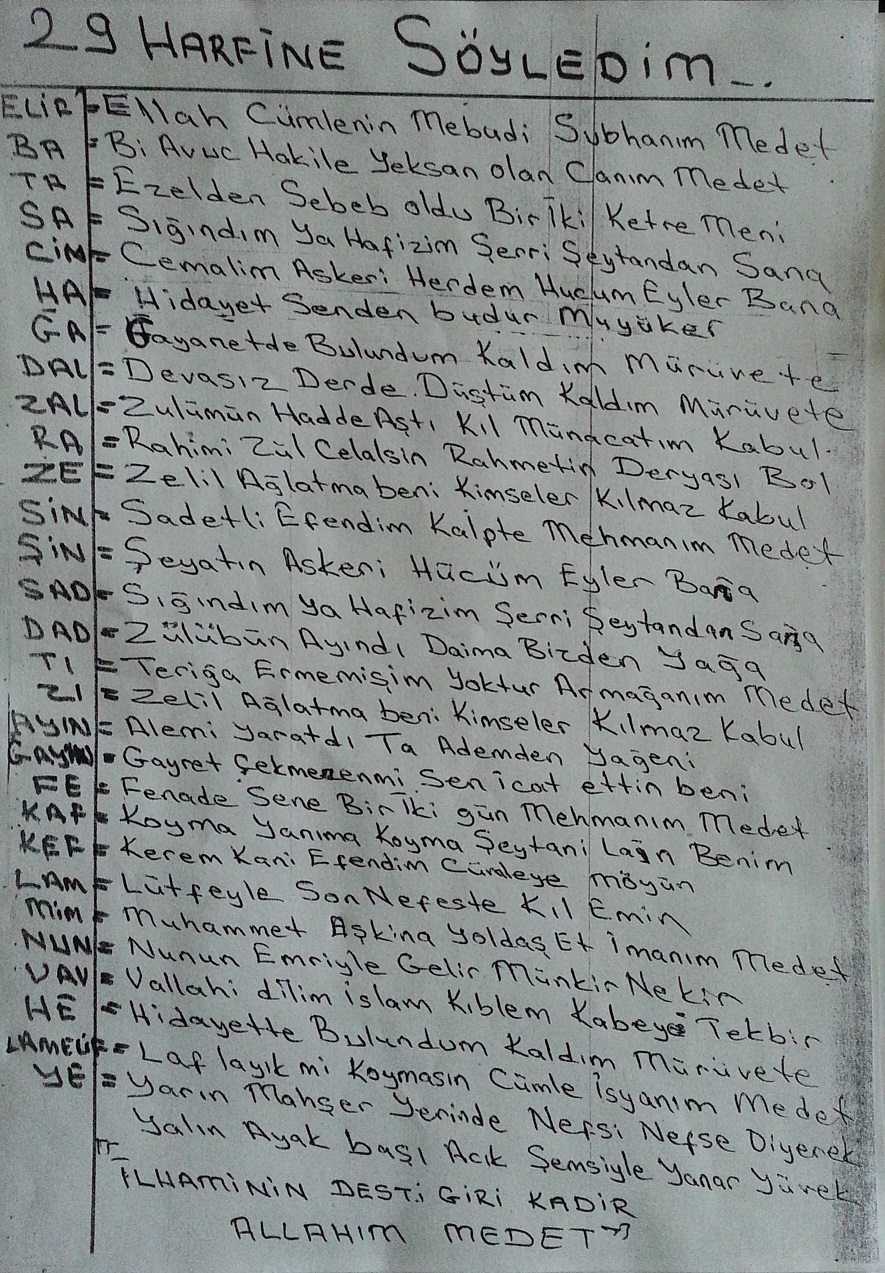 29 HARFİNE SÖYLEDİM...
ELİF = Ellah Cümlenin Mebudi Subhanım Medet
BA = Bi Avuc Hakile Yeksan olan Canım Medet
TA = Ezelden Sebeb oldu Bir İki Ketre Meni
SA = Sığındım Ya Hafizim Şerri Şeytandan Sana
CİM = Cemalim Askeri Herdem Hucum Eyler Bana
HA = Hidayet Senden budur Muyüker
GA = Gayanetde Bulundum Kaldım Mürüvete
DAL = Devasız Derde Düştüm Kaldım Mürüvete
ZAL = Zulümün Hadde Aştı Kıl Münacatım Kabul.
RA = Rahimi Zül Celalsin Rahmetin Deryası Bol
ZE = Zelil Ağlatma beni Kimseler Kılmaz Kabul
SİN = Sadetli Efendim Kalpte Mehmanım Medet
ŞİN = Şeyatın Askeri Hücüm Eyler Bana
SAD = Sığındım Ya Hafizim Şerri Şeytandan Sana
DAD = Zülübün Ayındı Daima Bizden Yağa
TI = Teriğa Ermemişim Yoktur Armağanım Medet
ZI = Zelil Ağlatma beni Kimseler Kılmaz Kabul
AYIN = Alemi Yaratdı Ta Ademden Yağeni
GAYIN = Gayret Çekmezenmi Sen icat ettin beni
FE = Fenade Sene Bir İki gün Mehmanım Medet
KAF = Koyma Yanıma Koyma Şeytani Lağn Benim
KEF = Kerem Kani Efendim Cümleye Möyün
LAM = Lütfeyle Son Nefeste Kıl Emin
MİM = Muhammet Aşkina Yoldaş Et İmanım Medet
NUN = Nunun Emriyle Gelir Münkir Nekir
VAV = Vallahi dilim islam Kıblem Kabeye Tekbir
HE = Hidayette Bulundum Kaldım Mürüvete
LAMELİF = Laf layık mi Koymasın Cümle İsyanım Medet
YE = Yarın Mahşer Yerinde Nefsi Nefse Diyerek
Yalın Ayak başı Acık Şemsiyle Yanar Yürek
İLHAMİNİN DESTİ GİRİ KADİR
ALLAHIM MEDET